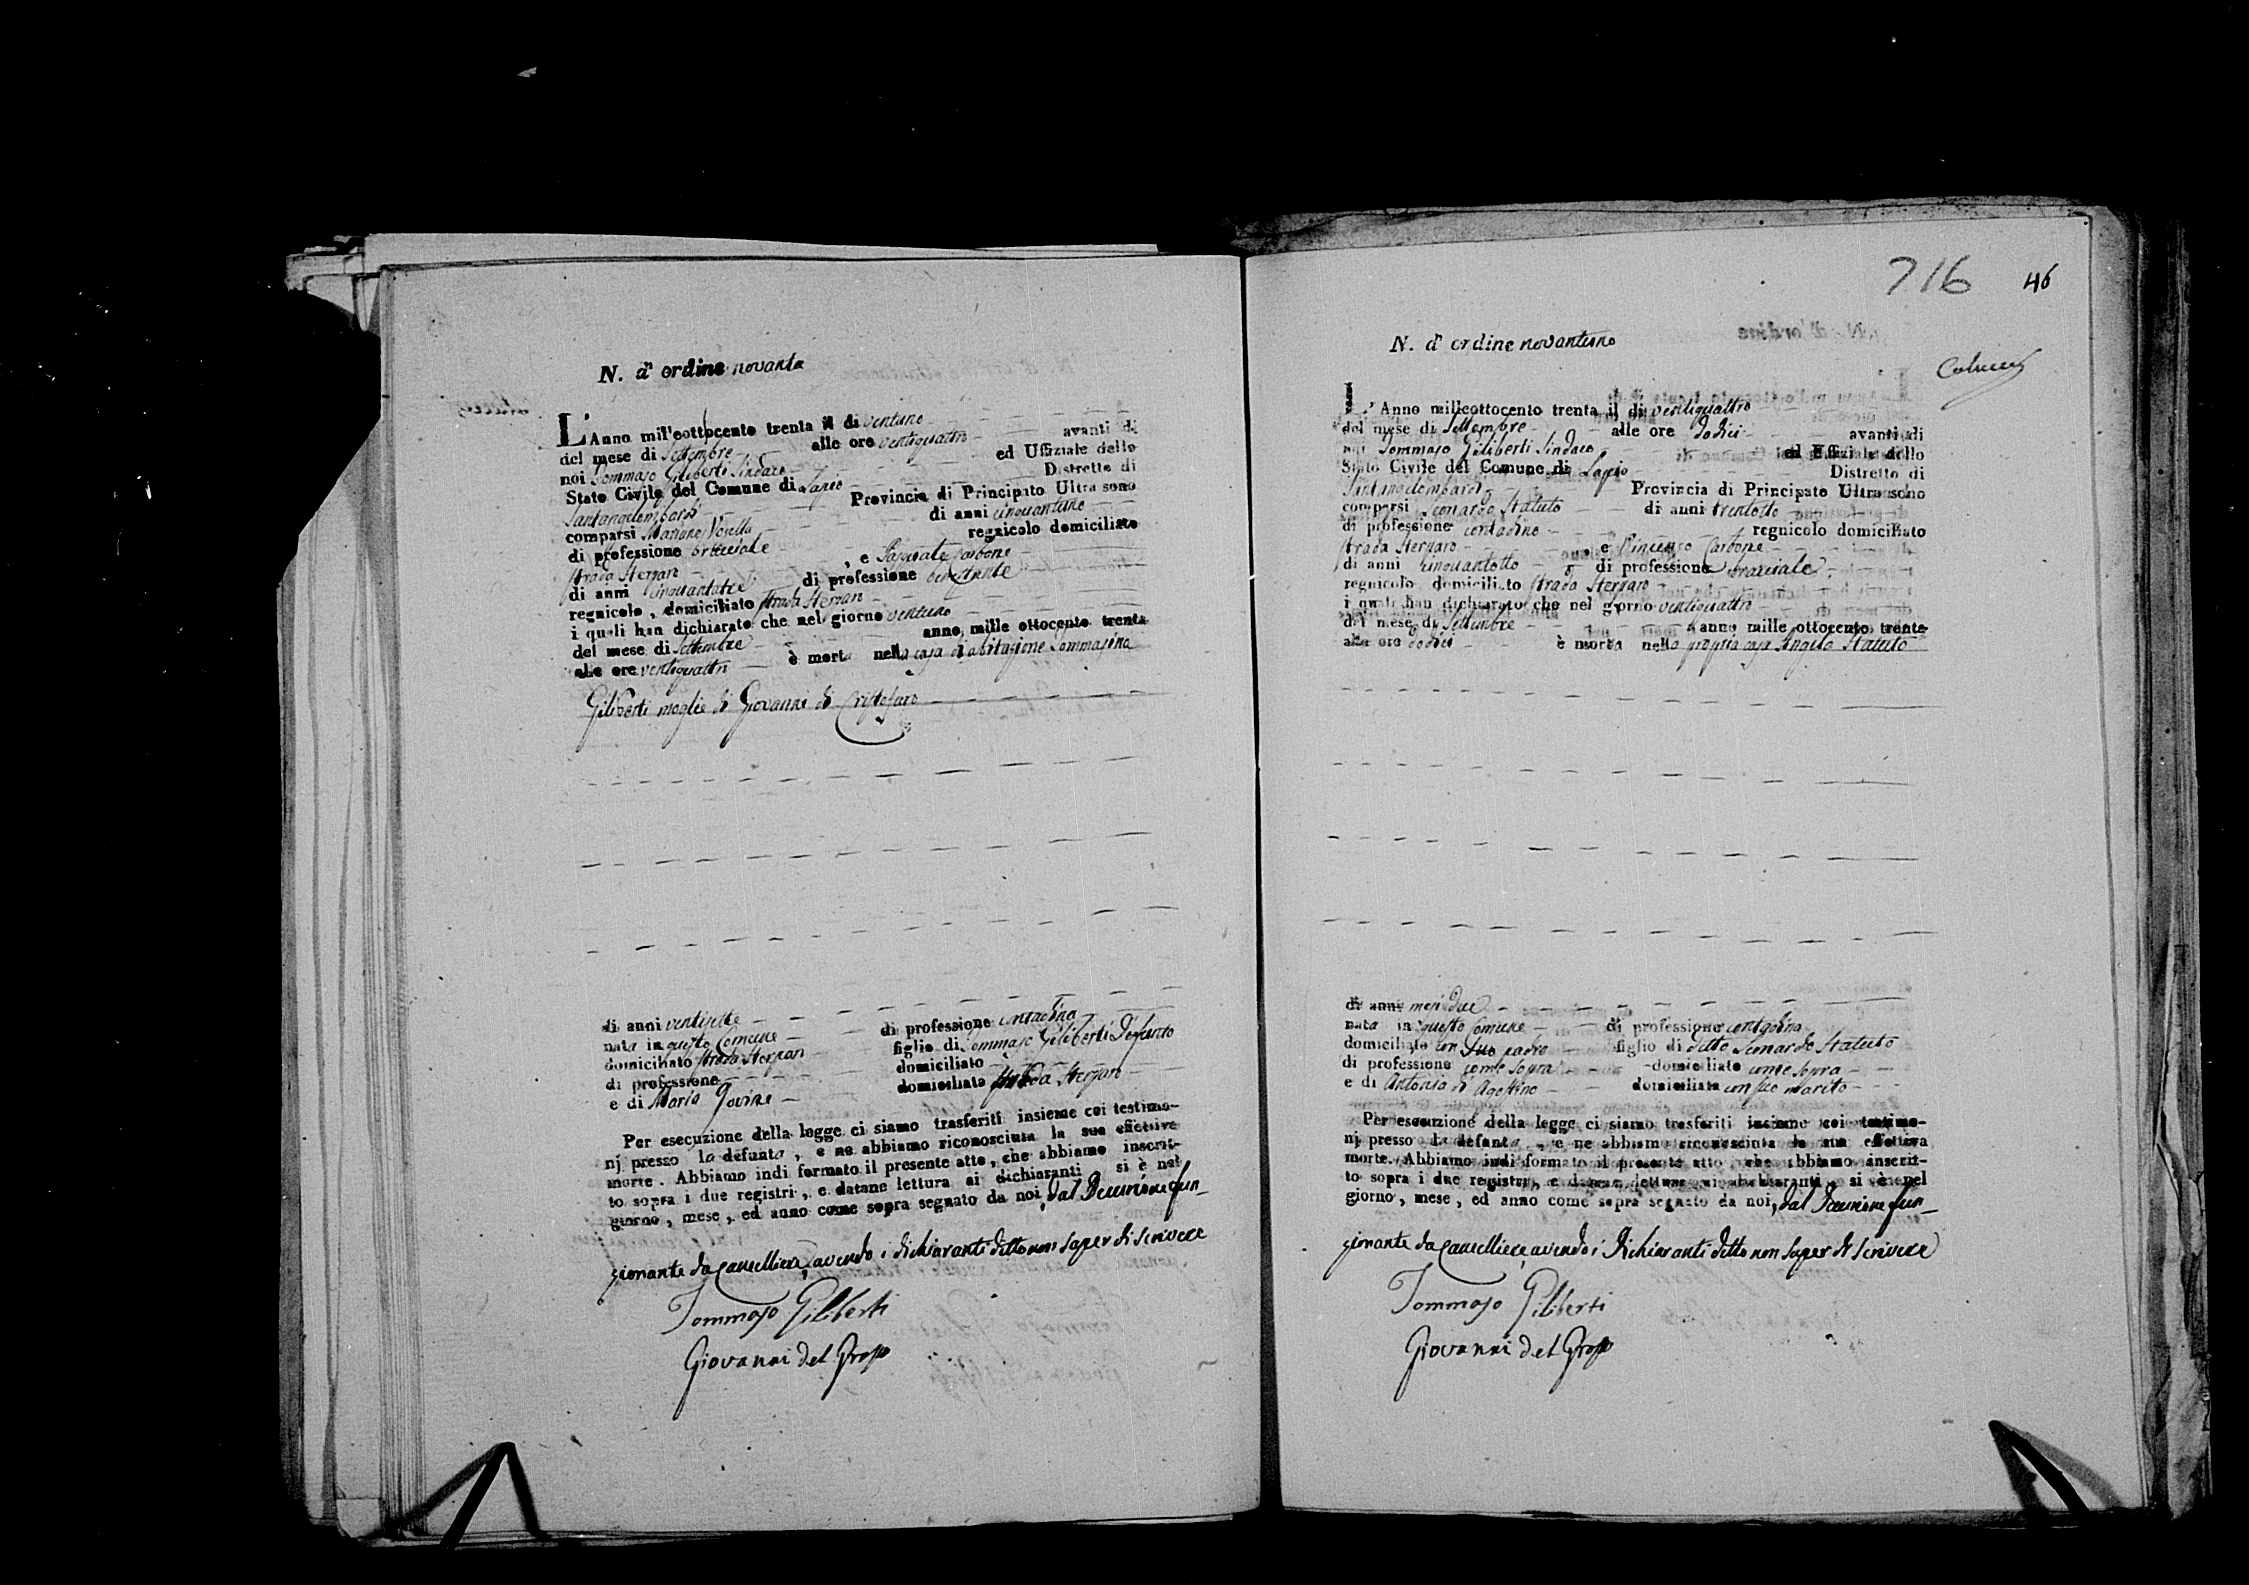 N. d'ordine novanta
L'Anno mil'eottocento trenta il di ventuno
del mese di Settembre alle ore ventiquattro avanti di
noi Tommaso Giliberti Sindaco ed Uffiziale dello
Stato Civile del Comune di Distretto di
Santangelombardi Provincia di Principato Ultra sono
comparsi Mariano di anni cinquantuno
di professione bracciale regnicolo domiciliato
strada , e Pasquale Carbone
di anni di professione
regnicolo , domiciliato strada
i quali han dichiarato che nel giorno ventuno
del mese di Settembre anno mille ottocento trenta
alle ore ventiquattro è morta nella casa d'abitazione Tommasina
Giliberti moglie di Giovanni di Cristofaro
di anni ventisette di professione contadina
nata in questo Comune figlia di Tommaso Giliberti Defunto
domiciliato strada domiciliato
di professione domiciliata strada
e di Maria Jovine
Per esecuzione della legge ci siamo trasferiti insieme coi testimo-
nj presso la defunta , e ne abbiamo riconosciuta la sua effettiva
morte . Abbiamo indi formato il presente atto , che abbiamo inscrit-
to sopra i due registri , e datane lettura ai dichiaranti si è nel
giorno , mese , ed anno come sopra segnato da noi, dal Decurione fun_
zionante da Cancelliere, avendo i dichiaranti detto non saper di scrivere
Tommaso Giliberti
Giovanni del Grosso
716 46
N. d'ordine novantuno
L'Anno milleottocento trenta il di ventiquattro
del mese di Settembre alle ore dodici avanti di
noi Tommaso Giliberti Sindaco ed Uffiziale dello
Stato Civile del Comune di Distretto di
Santangelombardi Provincia di Principato Ultra sono
comparsi Leonardo Statuto di anni trentotto
di professione contadino regnicolo domiciliato
strada e Vincenzo Carbone
di anni cinquantotto di professione bracciale
regnicolo domiciliato strada
i quali han dichiarato che nel giorno ventiquattro
del mese di Settembre anno mille ottocento trenta
alle ore dodici è morta nella propria casa Angela Statuto
di anni mesi due
nata in questo Comune di professione contadina
domiciliata con suo padre figlia di detto Leonardo Statuto
di professione come sopra domiciliato come sopra
e di Antonia d'Agostino domiciliata con suo marito
Per esecuzione della legge ci siamo trasferiti insieme coi testimo-
nj presso la defunta , e ne abbiamo riconosciuta la sua effettiva
morte. Abbiamo indi formato il presente atto che abbiamo inscrit-
to sopra i due registri , e datane lettura ai dichiaranti si è nel
giorno , mese , ed anno come sopra segnato da noi, dal Decurione fun_
zionante da Cancelliere avendo i Dichiaranti detto non saper di scrivere
Tommaso Giliberti
Giovanni del Grosso